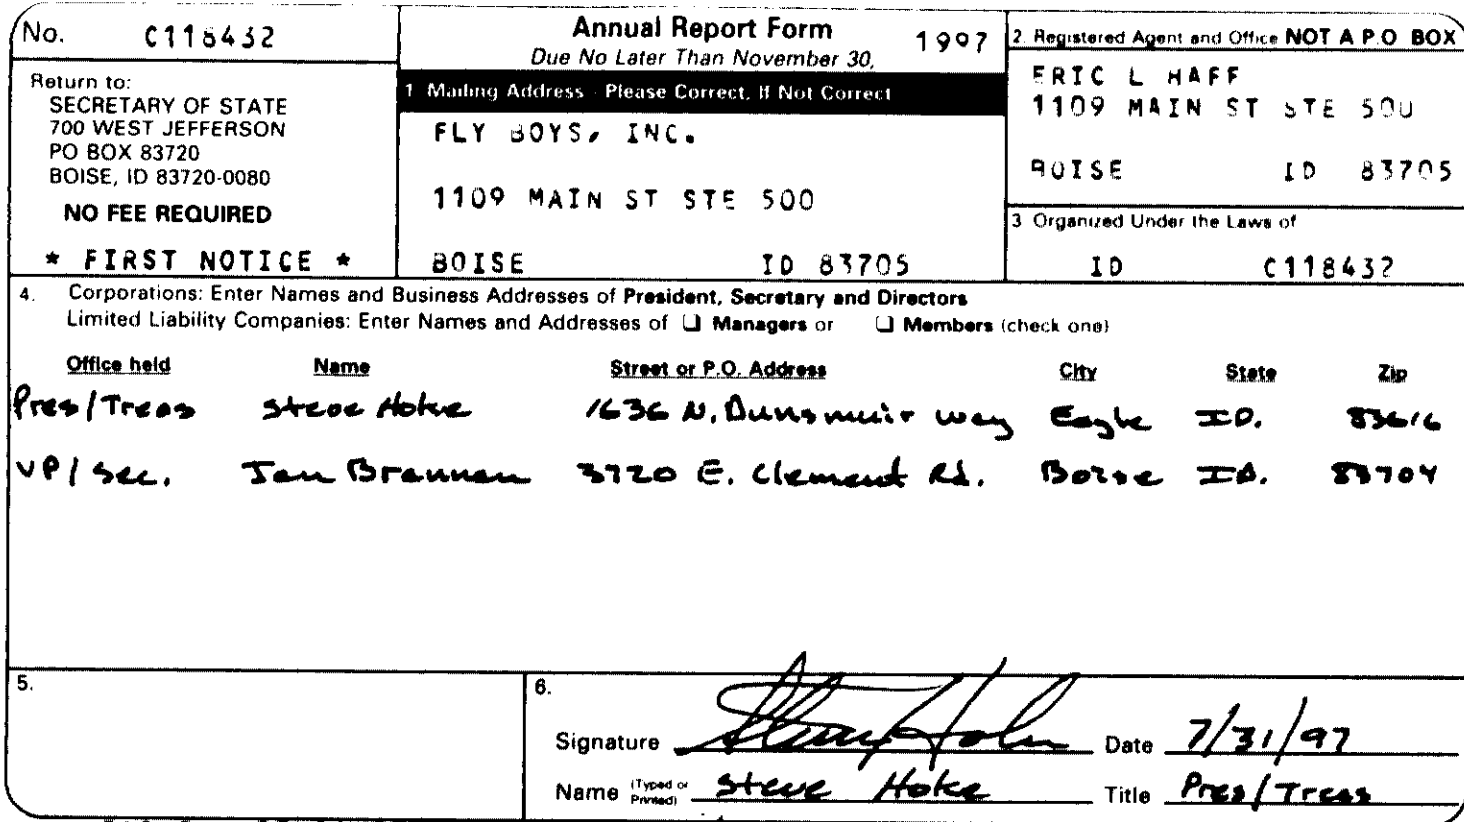 No. C118432
Annual Report Form 1997
Due No Later Than November 30,
Return to:
SECRETARY OF STATE
700 WEST JEFFERSON
PO BOX 83720
BOISE, ID 83720-0080
NO FEE REQUIRED
* FIRST NOTICE *
1 Mailing Address - Please Correct, If Not Correct
FLY BOYS, INC.
1109 MAIN ST STE 500
BOISE ID 83705
2. Registered Agent and Office NOT A P.O BOX
ERIC L HAFF
1109 MAIN ST STE 500
BOISE ID 83705
3 Organized Under the Laws of
ID C118432
4. Corporations: Enter Names and Business Addresses of President, Secretary and Directors
Limited Liability Companies: Enter Names and Addresses of ❑ Managers or ❑ Members (check one)
Office held Name Street or P.O. Address City State Zip
Pres/Treas Steve Hoke 1636 N. Dunsmuir Way Eagle ID. 83616
VP/Sec. Jan Brannen 3720 E. Clement Rd. Boise ID. 83704
5.
6.
Signature Date 7/31/97
Name (Typed or Printed) Steve Hoke Title Pres/Treas